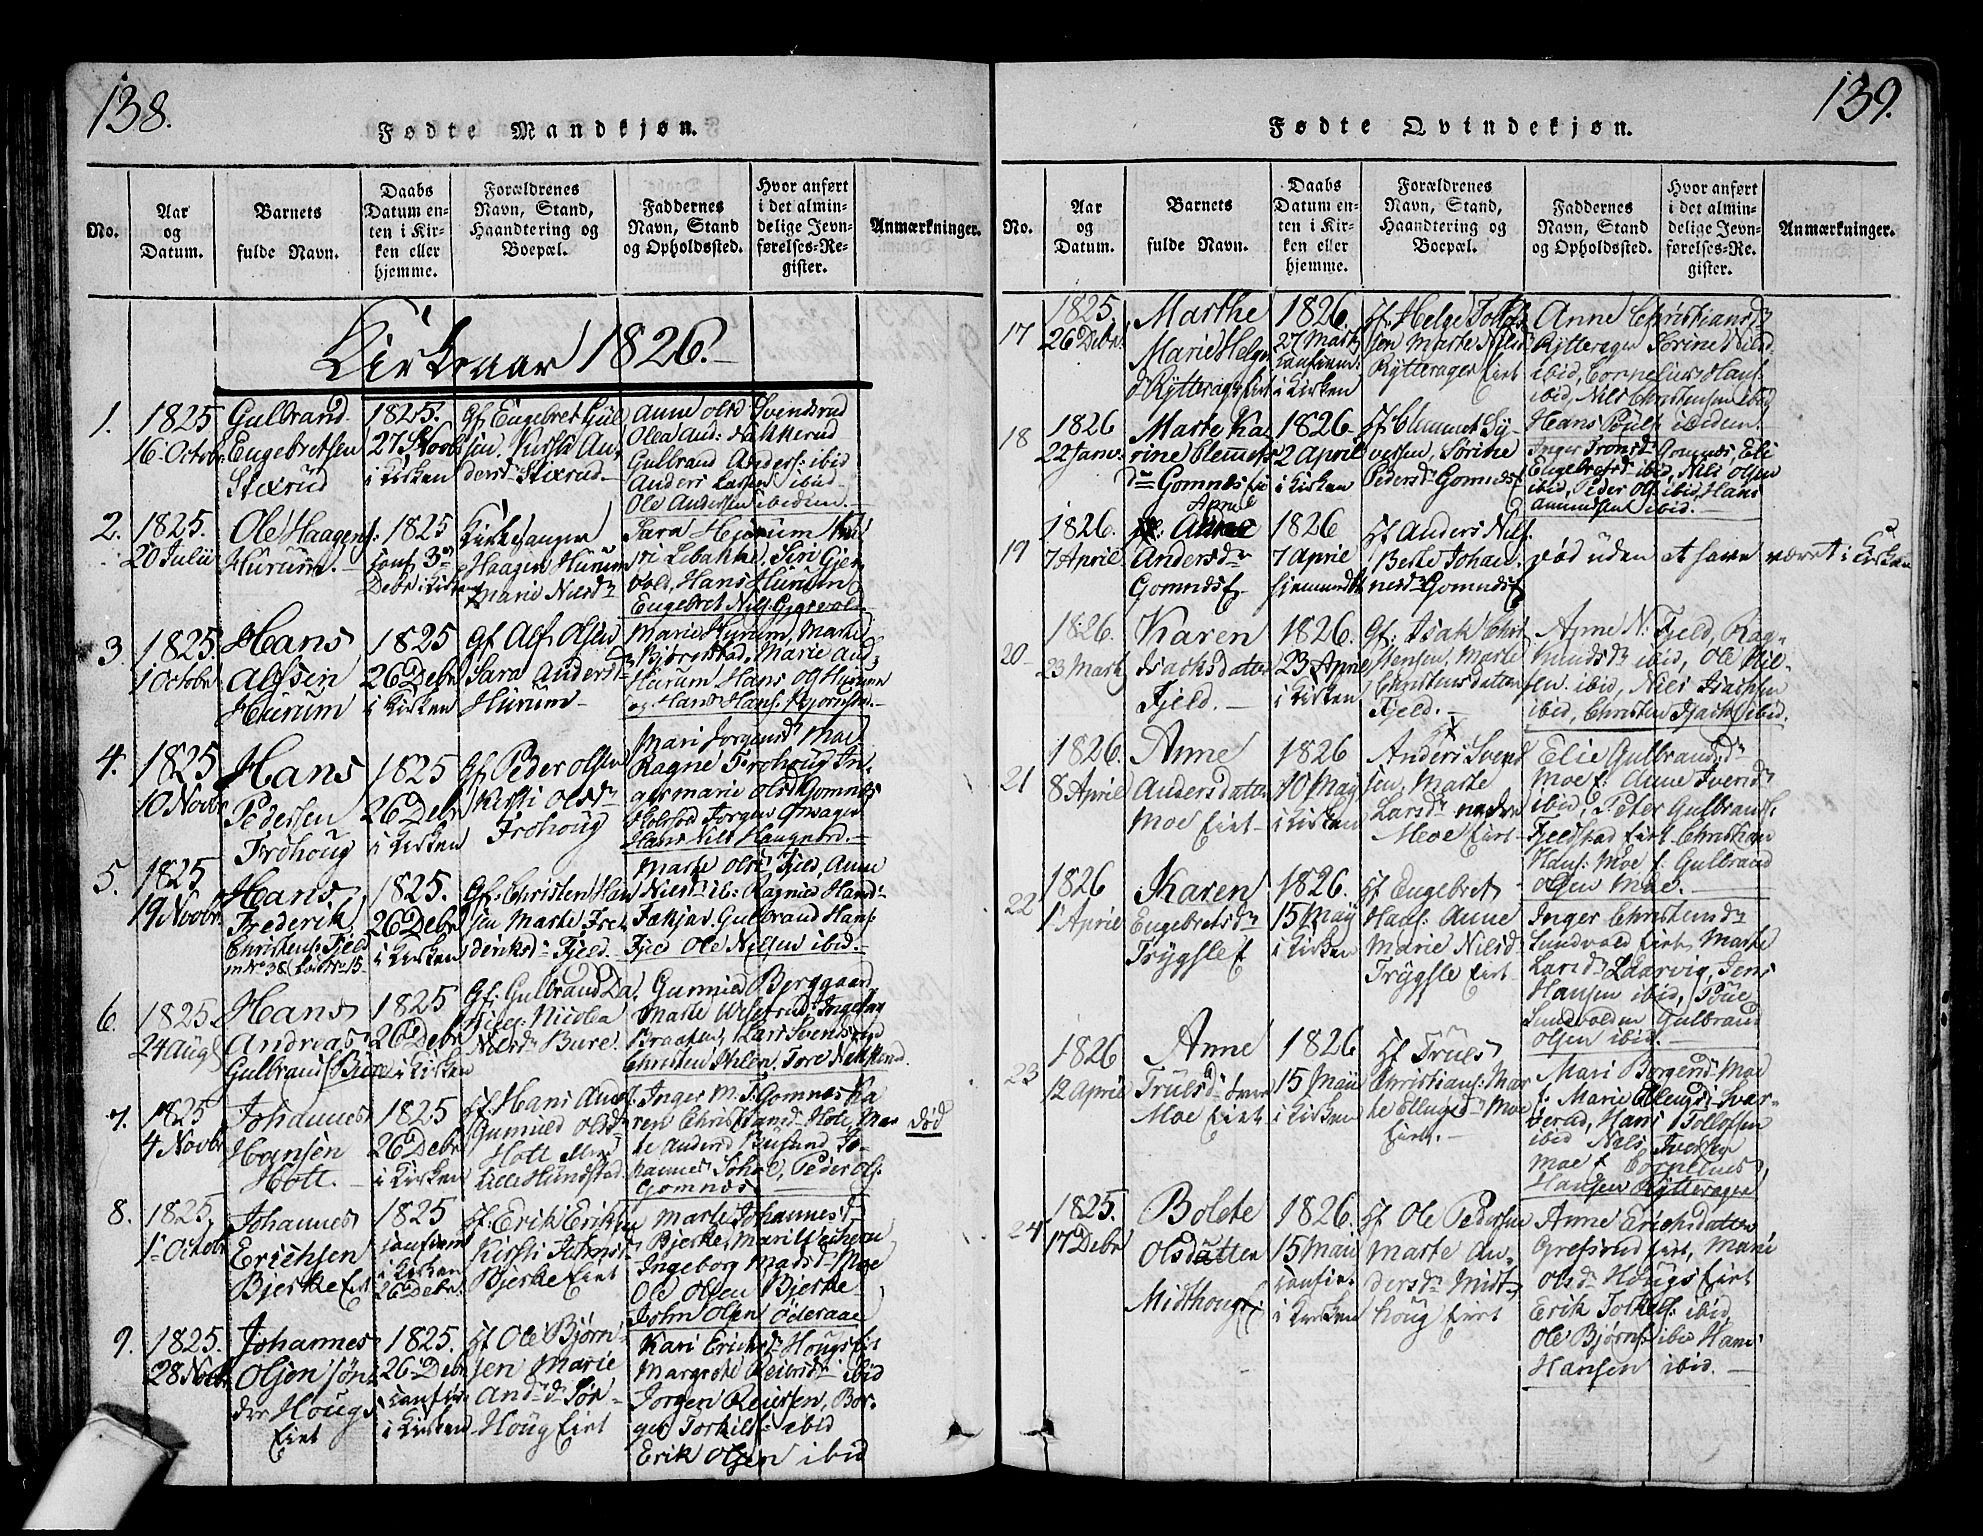 138.
Fødte Mandkjøn.
No.
Aar
og
Datum.
Barnets
fulde Navn.
Daabs
Datum en-
ten i Kir-
ken eller
hjemme.
Forældrenes
Navn, Stand,
Haandtering og
Boepæl.
Faddernes
Navn, Stand
og Opholdssted.
Hvor anført
i det almin-
delige Jevn-
førelses-Re-
gister.
Anmærkninger.
Kirkeaar 1826.
1.
1825
16 Octobr
Gulbrand
Engebretsen
Stixrud
1825.
27 Novb
i Kirken
Gf. Engebret Gul
sen, Kirsti An
dersd. Stixrud
Anne Olsd Svensrud
Gulbrand Anders: ibid
Anders Larsen ibid
Ole Andersen ibidem.
2.
1825.
20 Julii
Ole Haagens:
Hurum.
1825
conf. 3
Debr i Kirken
Kirkesanger
Haagen Hurum
Marie Nilsd
Sara Hurum
vold, Hans Hurum
Engebret Nils: Gjesvold
3
1825.
1 Octobr
Hans
Alfsen
Hurum
1825
26 Debr
i Kirken
Gf Alf Olsen
Sara Andersd
Hurum
Marie Hurum, Marte
Bjørnstad, Marie And
Hurum Hans
og Hans Hans:
4.
1825
10 Novbr
Hans
Pedersen
Frohoug
1825
26 Debr
i Kirken
Gf Peder Olsen
Kirsti Olsd
Frohoug
Mari Jorgensd Moe
Ragne Frohoug An
ne marie Olsd Gomnæs
5.
1825
19 Novbr
Hans
Frederik
Christens: Fjeld
1825.
26 Debr
i Kirken
Gf: Christen Han
sen Marte Fre
deriksd: Fjeld.
Marte Olsd Fjeld, Anne
Nilsd ib: Ragnid Hansd
Gulbrand Hans:
Fjeld Ole Nilsen ibid.
6.
1825.
24 Aug
Hans
Andreas
Gulbrands Bure
1825
26 Debr
i Kirken
Gf: Gulbrand Da
Nicolea
Nilsd Bure
Gunnild Berggaard
Braaten, Lars Svendsrud
Christen
7.
1825
4 Novbr
Johannes
Hansen
Hott.
1825
26 Debr
i Kirken
Hf Hans And
Gunnild Olsd
Hott
Lille Hundstad
Inger
Gomnæs Ka
ren Christiansd Hote, Mar
te Andersd Busund Jo-
hannes
Peder Ols:
Gomnæs
død
8.
1825
1 Octobr
Johannes
Erichsen
Bjerke Eiet
1825
confirm
i Kirken
26 Debr
Hf: Erik Eriksen
Kirsti Johnsd
Bjerke Eiet
Marte Johannes:
Bjerke, Mari
Ingeborg Madsd Moe
Ole Olsen Bjerke
John Olsen Oderaae
9.
1825.
28 Novbr
Johannes
Olsen søn
dre Hougs
Eiet
1825.
26 Debr
confir
i Kirken
Hf Ole Bjørn
sen Marie
And. d. Sør
Houg Eiet
Kari Erichsd Hougs Eiet
Margrete Reiersd ibid
Jorgen Reiersen, Bor-
ger Torkils: ibid
Erik Olsen ibid
139.
Fødte Qvindekjøn.
No.
Aar
og
Datum.
Barnets
fulde Navn.
Daabs
Datum en-
ten i Kir-
ken eller
hjemme.
Forældrenes
Navn, Stand,
Haandtering og
Boepæl.
Faddernes
Navn, Stand
og Opholdssted.
Hvor anført
i det almin-
delige Jevn-
førelses-Re-
gister.
Anmærkninger.
17
1825.
26 Debr.
Marthe
Marie Helge
d Rytterager Eiet
1826.
27 Marts
confirm.
i Kirken
Hf. Helge Tollefs
sen Marte Nilsd
Rytterager Eiet
Anne Christiansd
Rytterager Sørine Nilsd
ibid, Cornelius Hans
ibid, Nils Christensen ibid
Hans Pouls ibidem.
18
1826
22 Janv.
Marte Ka
rine Clemets
d Gomnæs Ei
1826
2 April
i Kirken
Hf Clemmet Sy-
versen, Sørine
Pedersd Gomnæs
Inger Tronsd Gomnæs, Eli
Engebretsd ibid, Nils Olsen
ibid, Peder Ols ibid, Hans
Amundsen ibid.
19
1826.
7 April
Anne
Andersd
Gomnds E.
1826
7 April
hjemmedøbt
Hf Anders Nils.
Berte Johan-
nesd Gomnds E
død uden at have været i Kirken
20
1826.
23 Marts
Karen
Isachsdatter
Fjeld.
1826.
23 April
i Kirken
Gf: Isak Chri
stensen, Marte
Christensdatter
Fjeld.
Anne N: Fjeld, Rag-
Knudsd ibid, Ole Nil-
sen ibid, Nils Isachsen
ibid, Christen Isach: ibid.
21
1826.
8 April
Anne
Andersdatter
Moe Eiet
1826
10 May
i Kirken
Anders Svend
sen, Marte
Larsd nedre
Moe Eiet
Elie Gulbrandsd
Moe E. Anne Svend
ibid, Peter Gulbrands
Fjeldstad Eiet Christian
Hans: Moe E. Gulbrand
Olsen Moe.
22
1826
1 April
Karen
Engebretsd
Trygsle E
1826.
15 May
i Kirken
Hf Engebret
Hans: Anne
Marie Nilsd
Trygsle Eiet
Inger Christensd
Sundvold Eiet, Marte
Larsd Laarvig, Jens
Hansen ibid, Poul
Sundvolden Gulbrand
Olsen ibid.
23
1826
12 April
Anne
Trulsd
Moe Eiet
1826
15 Maii
i Kirken
Hf Truls
Christians: Mar
te Ellingsd Moe
Eiet.
Mari Borgersd Moe
E. Marie Ellingsd Svar-
verud, Hans Tollefsen
ibid Nils Iversen
Moe E Cornelius
Hansen Rytterager
24
1825.
17 Debr
Bolete
Olsdatter
Midthoug Ei
1826.
15 Maii
confir.
i Kirken
Hf Ole Pedersen
Marte An-
dersd Midt-
houg Eiet
Anne Erichsdatter
Grefsrud Eiet, Marie
Olsd Hougs Eiet
Erik Torkels: ibid,
Ole Bjørns: ibid Hans
Hansen ibid.